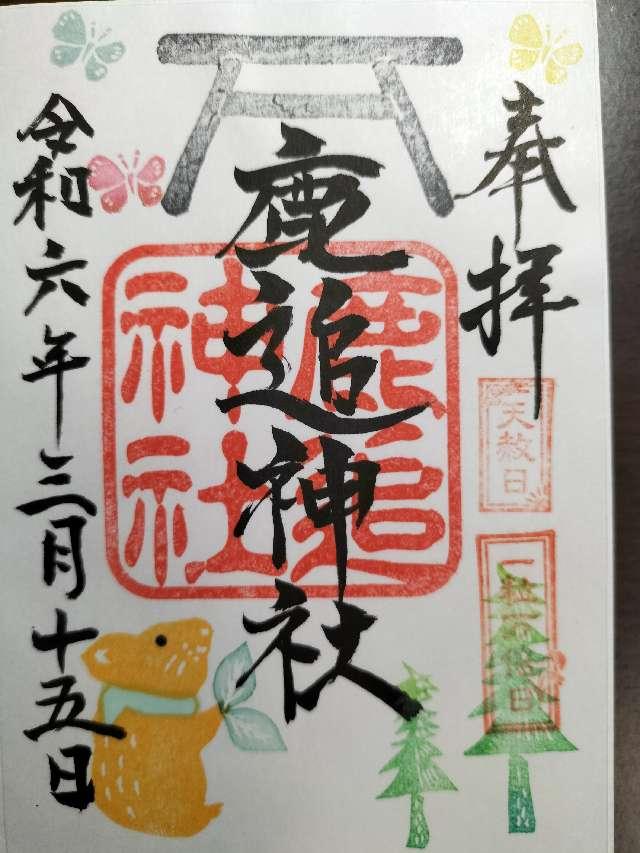 奉拝
天赦日
一粒万倍日
鹿追神社
鹿追神社
令和六年三月十五日